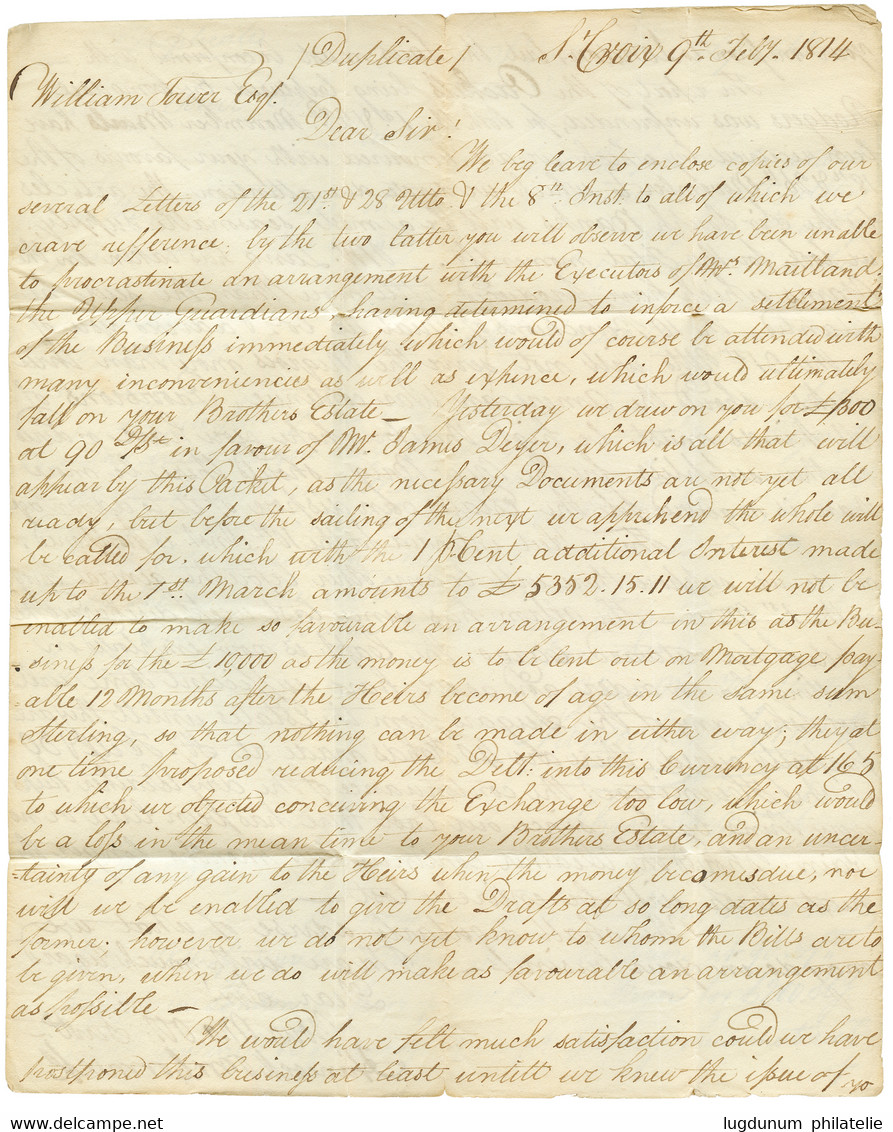 /Duplicate/ St. Croix 9th. Feby. 1814
William Tower Esqr.
Dear Sir!
We beg leave to enclose copies of our
several Letters of the 21st. & 28 Ulto & the 8th. Inst. to all of which we
crave refference; by the two latter you will observe we have been unable
to procrastinate an arrangement with the Executors of Mrs. Maitland.
the Upper Guardians, having determined to inforce a settlement
of the Business immediately which would of course be attended with
many inconveniencies as well as expence, which would ultimately
fall on your Brothers Estate – Yesterday we drew on you for
at 90 D/St in favour of Mr. James Deyer, which is all that will
appear by this Packet, as the necessary Documents are not yet all
ready, but before the sailing of the next we apprehend the whole will
be called for. which with the 1 pCent additional Interest made
up to the 1st. March amounts to £5352.15.11 we will not be
enabled to make so favourable an arrangement in this as the Bu-
-siness for the £10,000 as the money is to be lent out on Mortgage pay-
-able 12 Months after the Heirs become of age in the same sum
Sterling, so that nothing can be made in either way; they at
one time proposed reducing the Debt: into this Currency at 165
to which we objected conceiving the Exchange too low, which would
be a loss in the mean time to your Brothers Estate, and an uncer-
-tainty of any gain to the Heirs when the money becomes due, nor
will we be enabled to give the Drafts at so long dates as the
former; however we do not yet know to whom the Bills are to
be given, when we do will make as favourable an arrangement
as possible –
We would have felt much satisfaction could we have
postponed this business at least untill we knew the issue of
yo
lugdunum philatelie